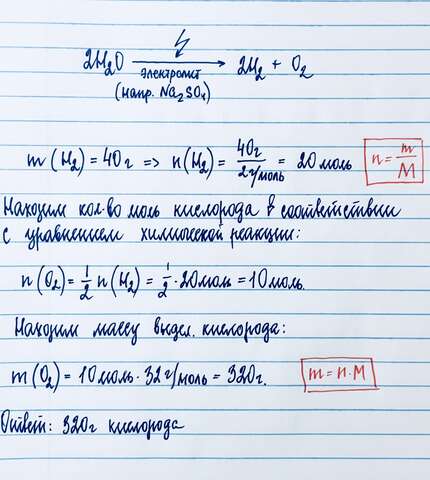 2H₂O → 2H₂ + O₂
электролит
(напр. Na₂SO₄)
m (H₂) = 40г => n(H₂) = 40г / 2г/моль = 20 моль n = m/M
Находим кол-во моль кислорода в соответствии
с уравнением химической реакции:
n(O₂) = 1/2 n(H₂) = 1/2 · 20моль = 10 моль.
Находим массу выдел. кислорода:
m(O₂) = 10 моль · 32 г/моль = 320г. m = n · M
Ответ: 320г кислорода